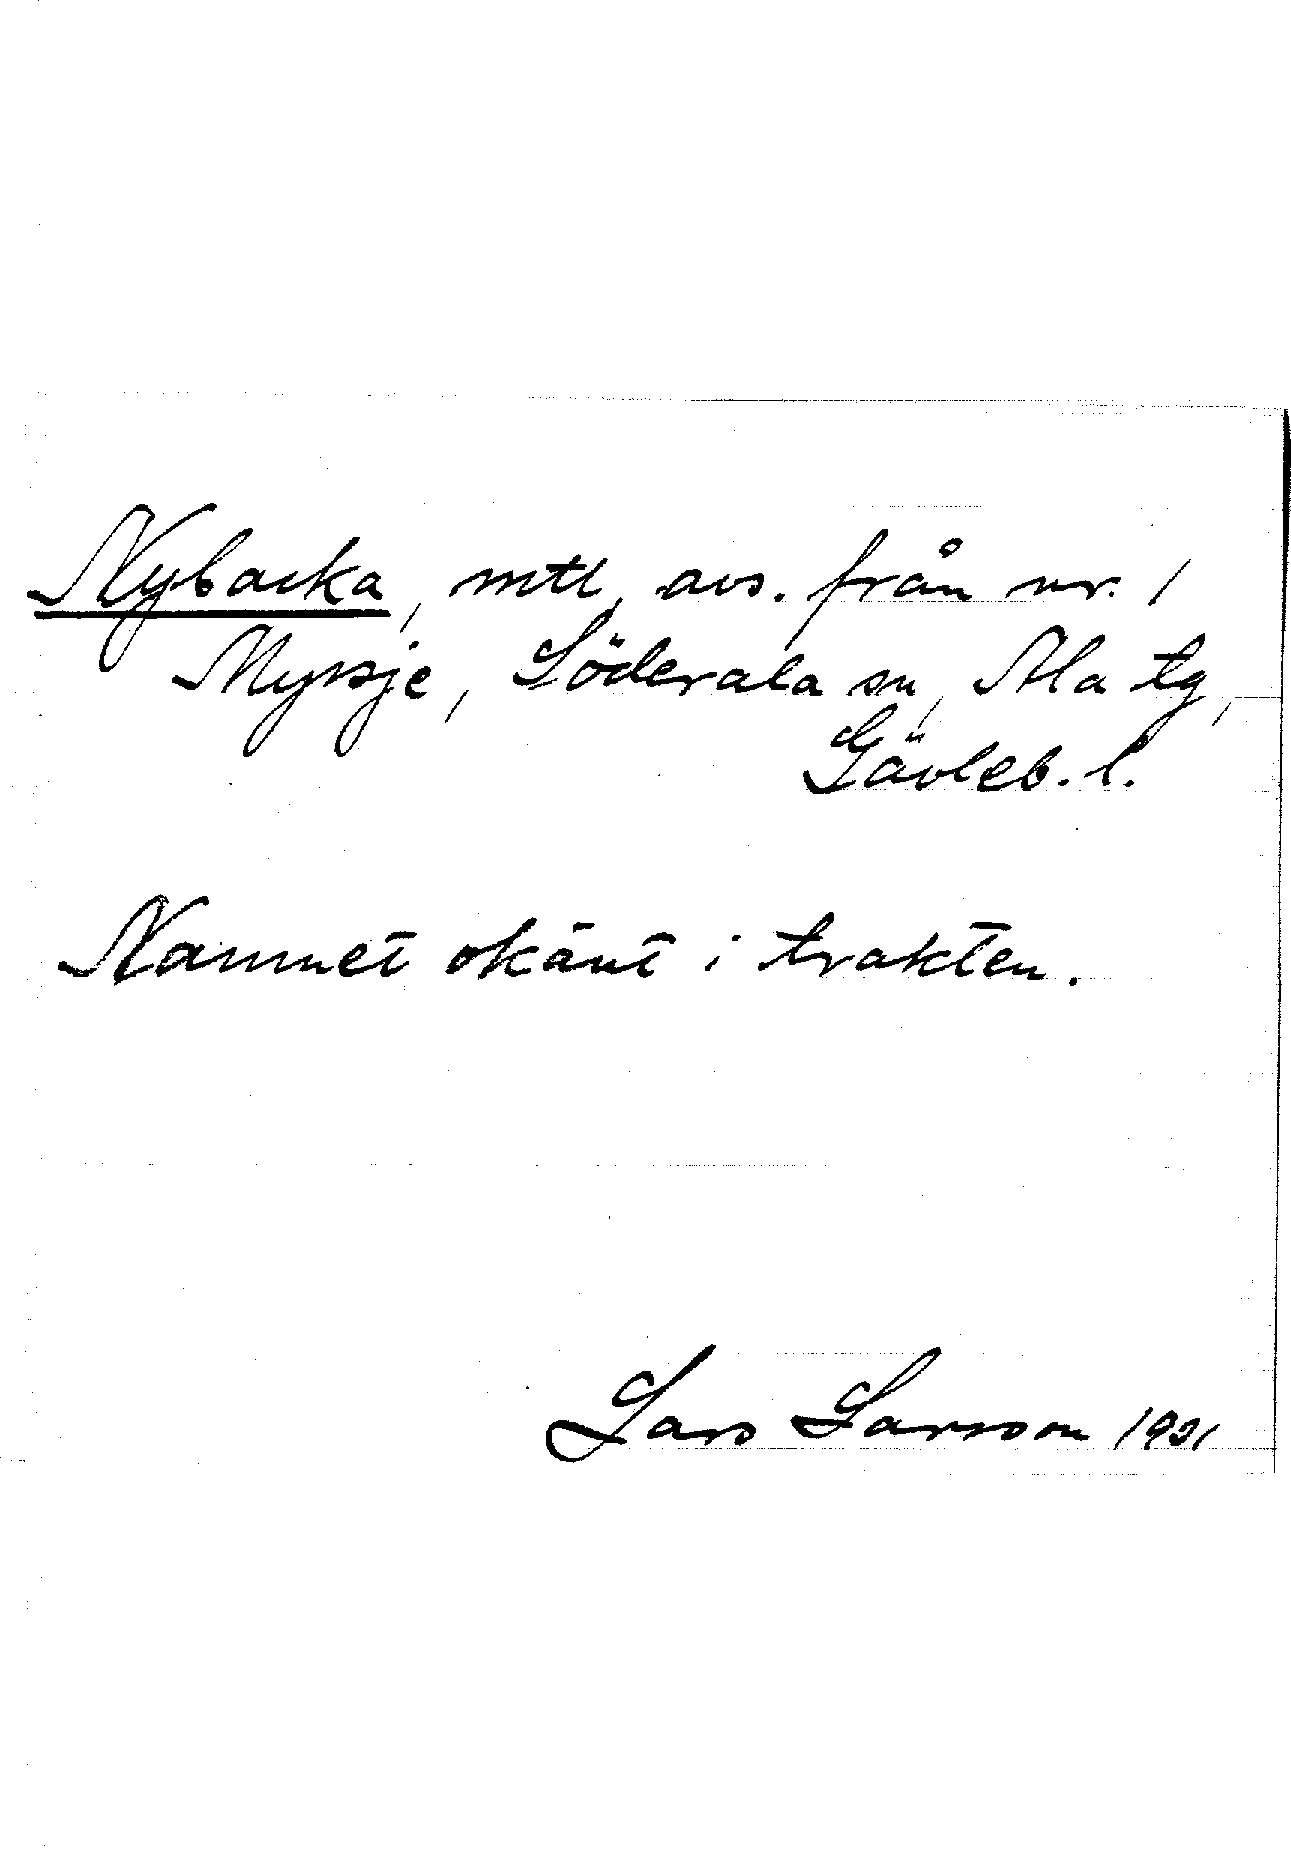 Nybacka, mtl, avs. från nr. 1
Myskje, Söderala sn, Ala tg,
Gävleb. l.
Namnet okänt i trakten.
Lars Larsson 1921